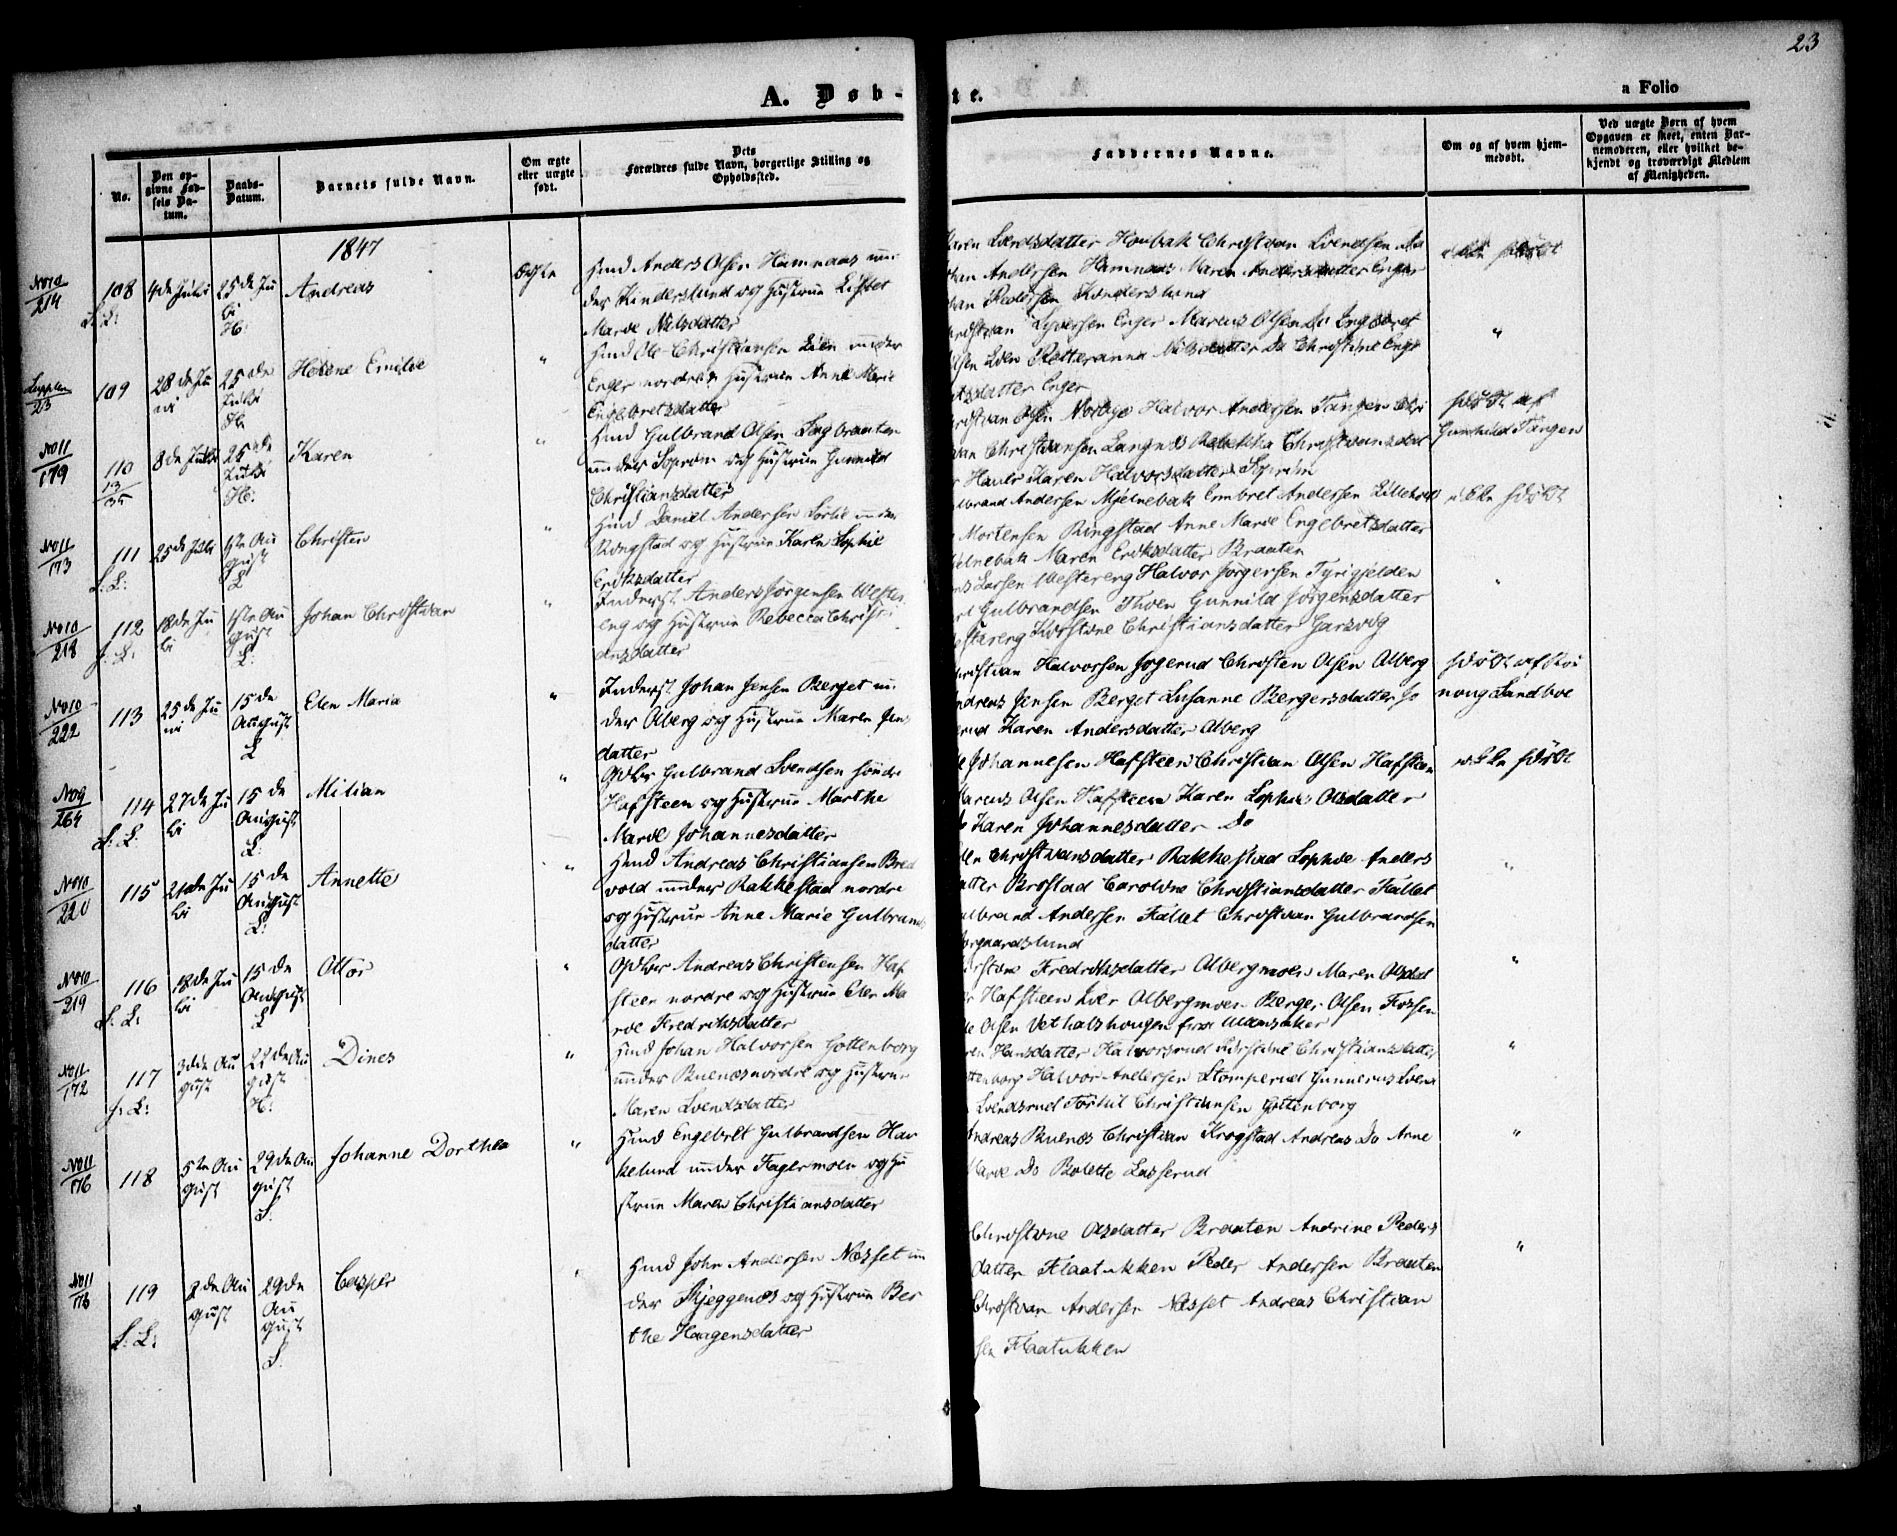 23
A. Døb-
te.
a Folio
No.
Den op-
givne Fød-
sels Da-
tum.
Daabs-
Datum.
Barnets fulde Navn.
Om ægte
eller uægte
født.
Dets
Forældres fulde Navn, borgerlige Stilling og
Opholdssted.
Faddernes Navne.
Om og af hvem hjem-
medøbt.
Ved uægte Børn af hvem
Opgaven er skeet, enten Bar-
nemoderen, eller hvilket be-
kjendt og troværdigt Medlem
af Menigheden.
1847
No 10
214
108
4de Juli
25de Ju
li
H:
Andreas
Ægte
Huusmd Anders Olsen Hamnaas un-
der Kinderslund og Hustrue Lisbet
Marie Nilsdatter
Karen Svendsdatter Houbak Christian Svendsen
Johan Andersen Hamnaas Maren Andersdatter Enger
Johan Pedersen Kinderslund
ikke hjdøbt
23
109
28de Ju
ni
25de
Juli
H:
Helene Emilie
"
Huusmd Ole Christiansen Lien under
Enger nordre og Hustrue Anne Marie
Engebretsdatter
Christian Syversen Enger Marcus Olsen Do Engebret
Olsen Lien Petteranna Nilsdatter Do Christine Enge
bretsdatter Enger
"
No 11
179
110
13
35
8de Juli
25de
Juli
H:
Karen
"
Huusmd Gulbrand Olsen Sagbraaten
under Soprim og Hustrue Gunnild
Christiansdatter
Christian Olsen Norbye Halvor Andersen Tangen Chri
stian Christiansen Langnes Rebekka Christiansdat
ter Hauer Karen Halvorsdatter Soprim
hjdøbt af
Gunnild Tangen
No 11
173
111
S: L:
25de Juli
1ste Au
gust
L
Christen
"
Huusmd Daniel Andersen Sørlie under
Ringstad og Hustrue Karen Sophie
Eriksdatter
Gulbrand Andersen Mjelnebak Embret Andersen Lillehof
Mortensen Ringstad Anne Marie Engebretsdatter
Mjelnebak Maren Eriksdatter Braaten
ikke hjdøbt
No 10
218
112
S: L:
18de Ju
li
1ste Au
gust
L:
Johan Christian
"
Inderst Anders Jørgensen Wester
eng og Hustrue Rebecca Christi
ansdatter
Larsen Westereng Halvor Jørgensen Tyrigjelden
Gulbrandsen Thoen Gunnild Jørgensdatter
Westereng Kirstine Christiansdatter Garsvig
"
No 10
222
113
25de Ju
ni
15de
August
L
Elen Maria
"
Inderst Johan Jensen Berget un-
der Alberg og Hustrue Maren Jens
datter
Christian Halvorsen Jogerud Christen Olsen Alberg
Andreas Jensen Berget Susanne Bergersdatter Jo
gerud Karen Andersdatter Alberg
hjdøbt af Rø
noug Sandboe
No 9
264
114
S: L:
27de Ju
li
15de
August
L:
Milian
"
Opsr Gulbrand Svendsen søndre
Hafsteen og Hustrue Marthe
Marie Johannesdatter
Ole Johannesen Hafsteen Christian Olsen Hafsteen
Marcus Olsen Hafsteen Karen Sophie Olsdatter
Do Karen Johannesdatter Do
ikke hjdøbt
No 10
220
115
21de Ju
li
15de
August
L:
Annette
"
Huusmd Andreas Christiansen Bred
vold under Rakkestad nordre
og Hustrue Anne Marie Gulbrands
datter
Elen Christiansdatter Rakkestad Sophie Anders
datter Brostad Caroline Christiansdatter Fallet
Gulbrand Andersen Fallet Christian Gulbrandsen
Borgaardslund
"
No 10
219
116
S: L:
18de Ju
li
15de
August
L
Ottor
"
Opsr Andreas Christensen Haf
steen nordre og Hustrue Elen Ma
rie Fredriksdatter
Kirstine Fredriksdatter Albergmoen Maren Olsdat
ter Hafsteen Iver Albergmoen Berger Olsen Fossen
Ole Olsen Vethalshougen fra Ullensaker
"
No 11
172
117
S: L:
3die Au
gust
22de Au
gust
H:
Dines
"
Huusmd Johan Halvorsen Gottenborg
under Buenæs nordre og Hustrue
Maren Svendsdatter
Karen Hansdatter Halvorsrud Kirstine Christiansdatter
Gottenborg Halvor Andersen Stomperud Gunnerus Svend
Svendsrud Torkil Christiansen Gottenborg
"
No 11
176
118
5te Au
gust
29de Au
gust
S.
Johanne Dorthea
"
Huusmd Engebret Gulbrandsen Hau
kelund under Fagermoen og Hu
strue Maren Christiansdatter
Andreas Buenæs Christian Krogstad Andreas Do Anne
Marie Do Bolette Lasserud
"
No 11
178
119
S: L:
2den Au
gust
29de
Au
gust
S.
Casper
"
Huusmd John Andersen Næsset un
der Skjeggenæs og Hustrue Ber
the Haagensdatter
Christine Olsdatter Braaten Andrine Peders
datter Flaatukken Peder Andersen Braaten
Christian Andersen Næsset Andreas Christian
sen Flaatukken
"